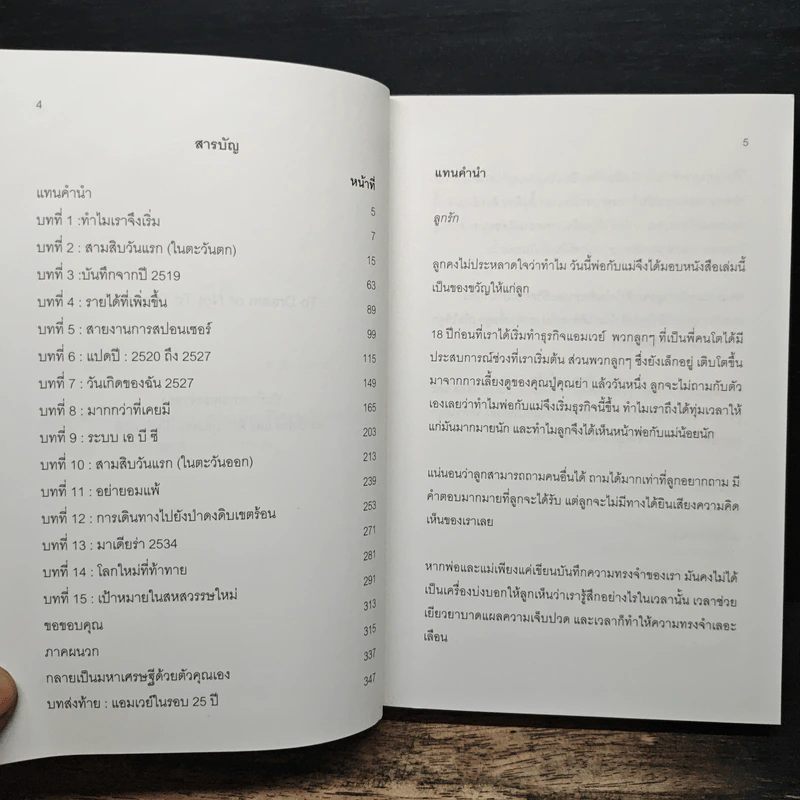 4
สารบัญ
หน้าที่
แทนคำนำ 5
บทที่ 1 :ทำไมเราจึงเริ่ม 7
บทที่ 2 : สามสิบวันแรก (ในตะวันตก) 15
บทที่ 3 :บันทึกจากปี 2519 63
บทที่ 4 : รายได้ที่เพิ่มขึ้น 89
บทที่ 5 : สายงานการสปอนเซอร์ 99
บทที่ 6 : แปดปี : 2520 ถึง 2527 115
บทที่ 7 : วันเกิดของฉัน 2527 149
บทที่ 8 : มากกว่าที่เคยมี 165
บทที่ 9 : ระบบ เอ บี ซี 203
บทที่ 10 : สามสิบวันแรก (ในตะวันออก) 213
บทที่ 11 : อย่ายอมแพ้ 239
บทที่ 12 : การเดินทางไปยังป่าดงดิบเขตร้อน 253
บทที่ 13 : มาเดียร่า 2534 271
บทที่ 14 : โลกใหม่ที่ท้าทาย 281
บทที่ 15 : เป้าหมายในสหสวรรษใหม่ 291
ขอขอบคุณ 313
ภาคผนวก 315
กลายเป็นมหาเศรษฐีด้วยตัวคุณเอง 337
บทส่งท้าย : แอมเวย์ในรอบ 25 ปี 347
5
แทนคำนำ
ลูกรัก
ลูกคงไม่ประหลาดใจว่าทำไม วันนี้พ่อกับแม่จึงได้มอบหนังสือเล่มนี้
เป็นของขวัญให้แก่ลูก
18 ปีก่อนที่เราได้เริ่มทำธุรกิจแอมเวย์ พวกลูกๆ ที่เป็นพี่คนโตได้มี
ประสบการณ์ช่วงที่เราเริ่มต้น ส่วนพวกลูกๆ ซึ่งยังเล็กอยู่ เติบโตขึ้น
มาจากการเลี้ยงดูของคุณปู่คุณย่า แล้ววันหนึ่ง ลูกจะไม่ถามกับตัว
เองเลยว่าทำไมพ่อกับแม่จึงเริ่มธุรกิจนี้ขึ้น ทำไมเราถึงได้ทุ่มเวลาให้
แก่มันมากมายนัก และทำไมลูกจึงได้เห็นหน้าพ่อกับแม่น้อยนัก
แน่นอนว่าลูกสามารถถามคนอื่นได้ ถามได้มากเท่าที่ลูกอยากถาม มี
คำตอบมากมายที่ลูกจะได้รับ แต่ลูกจะไม่มีทางได้ยินเสียงความคิด
เห็นของเราเลย
หากพ่อและแม่เพียงแค่เขียนบันทึกความทรงจำของเรา มันคงไม่ได้
เป็นเครื่องบ่งบอกให้ลูกเห็นว่าเรารู้สึกอย่างไรในเวลานั้น เวลาช่วย
เยียวยาบาดแผลความเจ็บปวด และเวลาก็ทำให้ความทรงจำเลอะ
เลือน